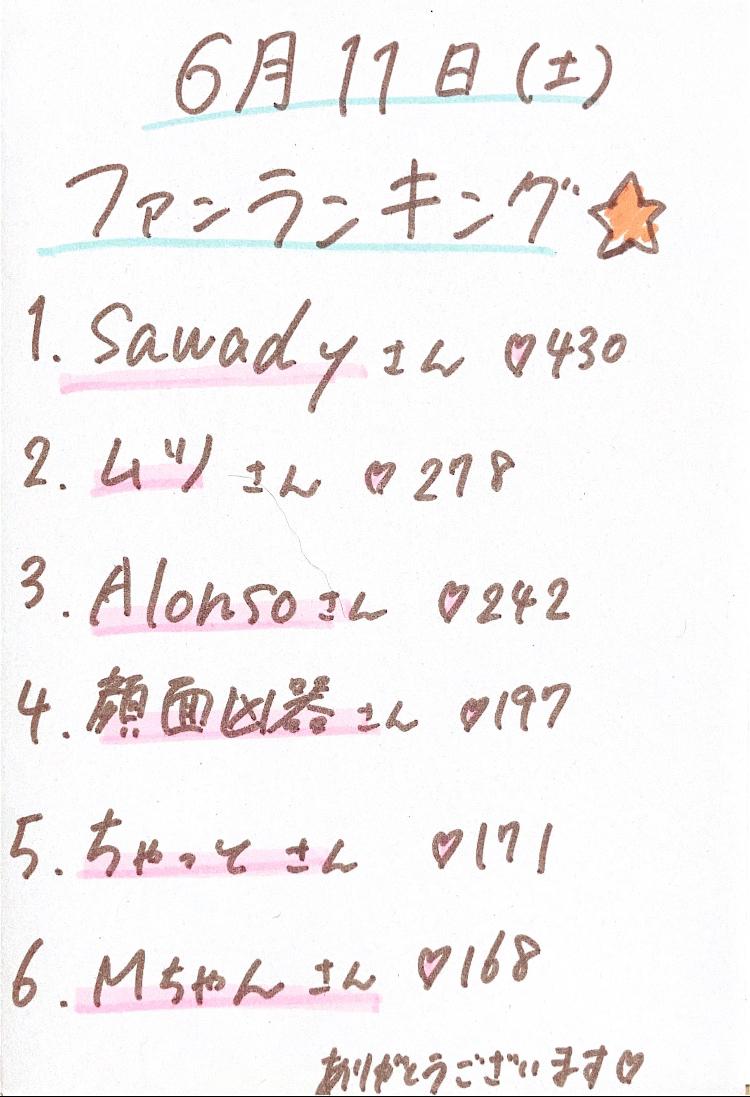 6月11日(土)
ファンランキング☆
1. Sawadyさん ♡430
2. ムツさん ♡278
3. Alonsoさん ♡242
4. 顔面凶器さん ♡197
5. ちゃってさん ♡171
6. Mちゃんさん ♡168
ありがとうございます♡